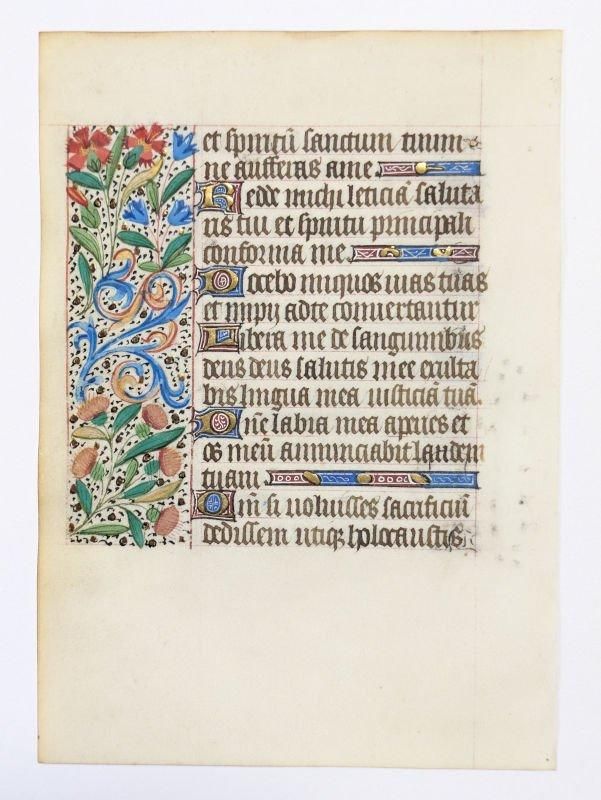 et spiritū sanctum tuum
ne aufferas ame.
Redde michi leticiā saluta
ris tui et spiritu principali
confirma me.
Docebo iniquos uias tuas
et impij adte conuertantur
Libera me de sanguinibus
deus deus salutis mee exulta
bit lingua mea iusticiā tuā.
Dñe labia mea aperies et
os meū annunciabit laudem
tuam.
Qm̄ si uoluisses sacrificiū
dedissem utiqꝫ holocaustis